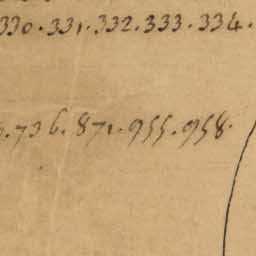 330. 331. 332. 333. 334.
. 736. 871. 955. 958.